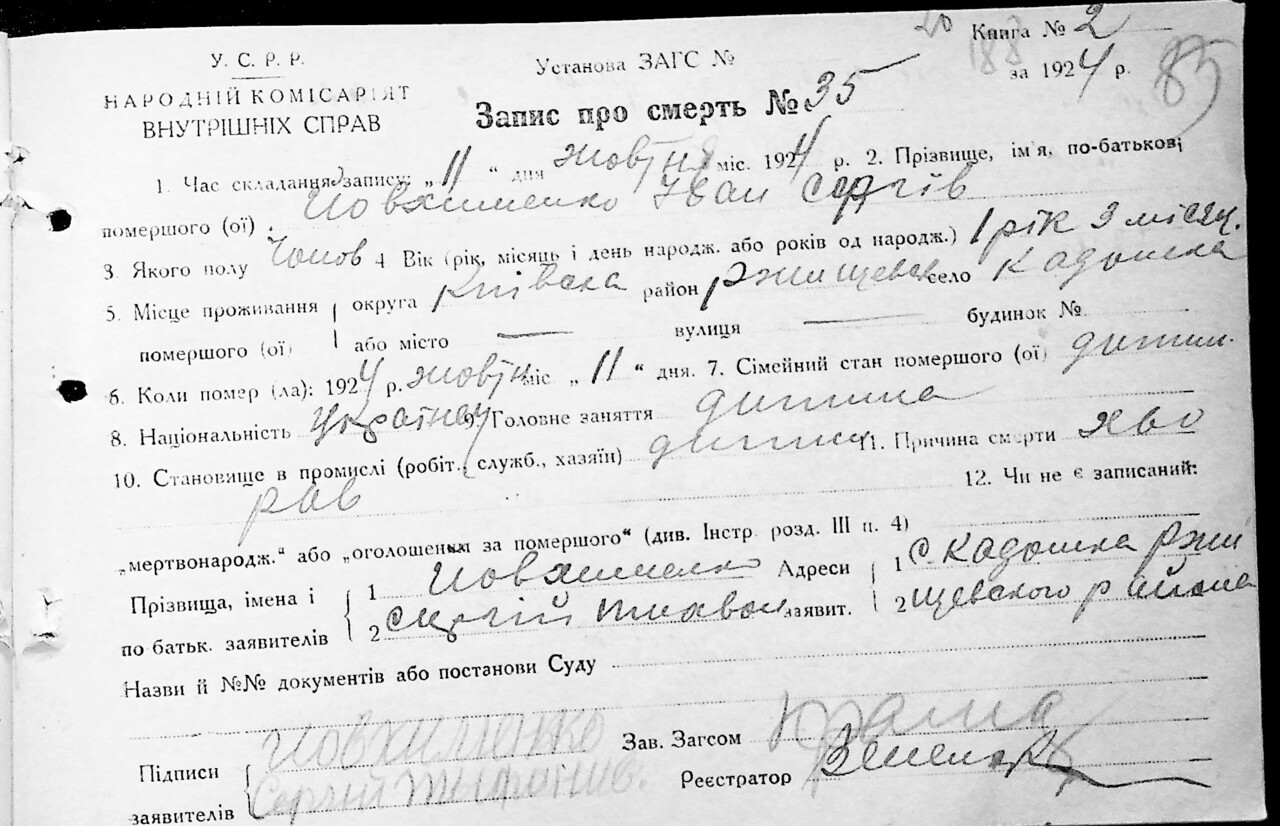 Книга № 2
У. С. Р. Р.
Установа ЗАГС №
188
за 1924 р.
85
НАРОДНІЙ КОМІСАРІЯТ
ВНУТРІШНІХ СПРАВ
Запис про смерть № 35
1. Час складання запису: „ 11 “ дня жовтня міс. 1924 р. 2. Прізвище, ім'я, по-батькові
помершого (ої) Йовхименко Іван Сергіїв
3. Якого полу Чолов 4. Вік (рік, місяць і день народж. або років од народж.) 1 рік 3 місяц.
5. Місце проживання округа Київска район Ржищевск село Кадомка
помершого (ої) або місто — вулиця — будинок №
6. Коли помер (ла): 1924 р. жовтн міс „ 11 “ дня. 7. Сімейний стан помершого (ої) дитин.
8. Національність Українец 9. Головне заняття дитина
10. Становище в промислі (робіт., служб., хазяїн) дитин 11. Причина смерти хво
рав
12. Чи не є записаний:
„мертвонародж.“ або „оголошеним за помершого“ (див. Інстр. розд. III п. 4)
Прізвища, імена і 1 Йовхименко Адреси 1 с. Кадомка Ржи
по батьк. заявителів 2 Сергій заявит. 2 щевского района
Назви й №№ документів або постанови Суду
Підписи Йовхименко Зав. Загсом
заявителів Сергій Реєстратор